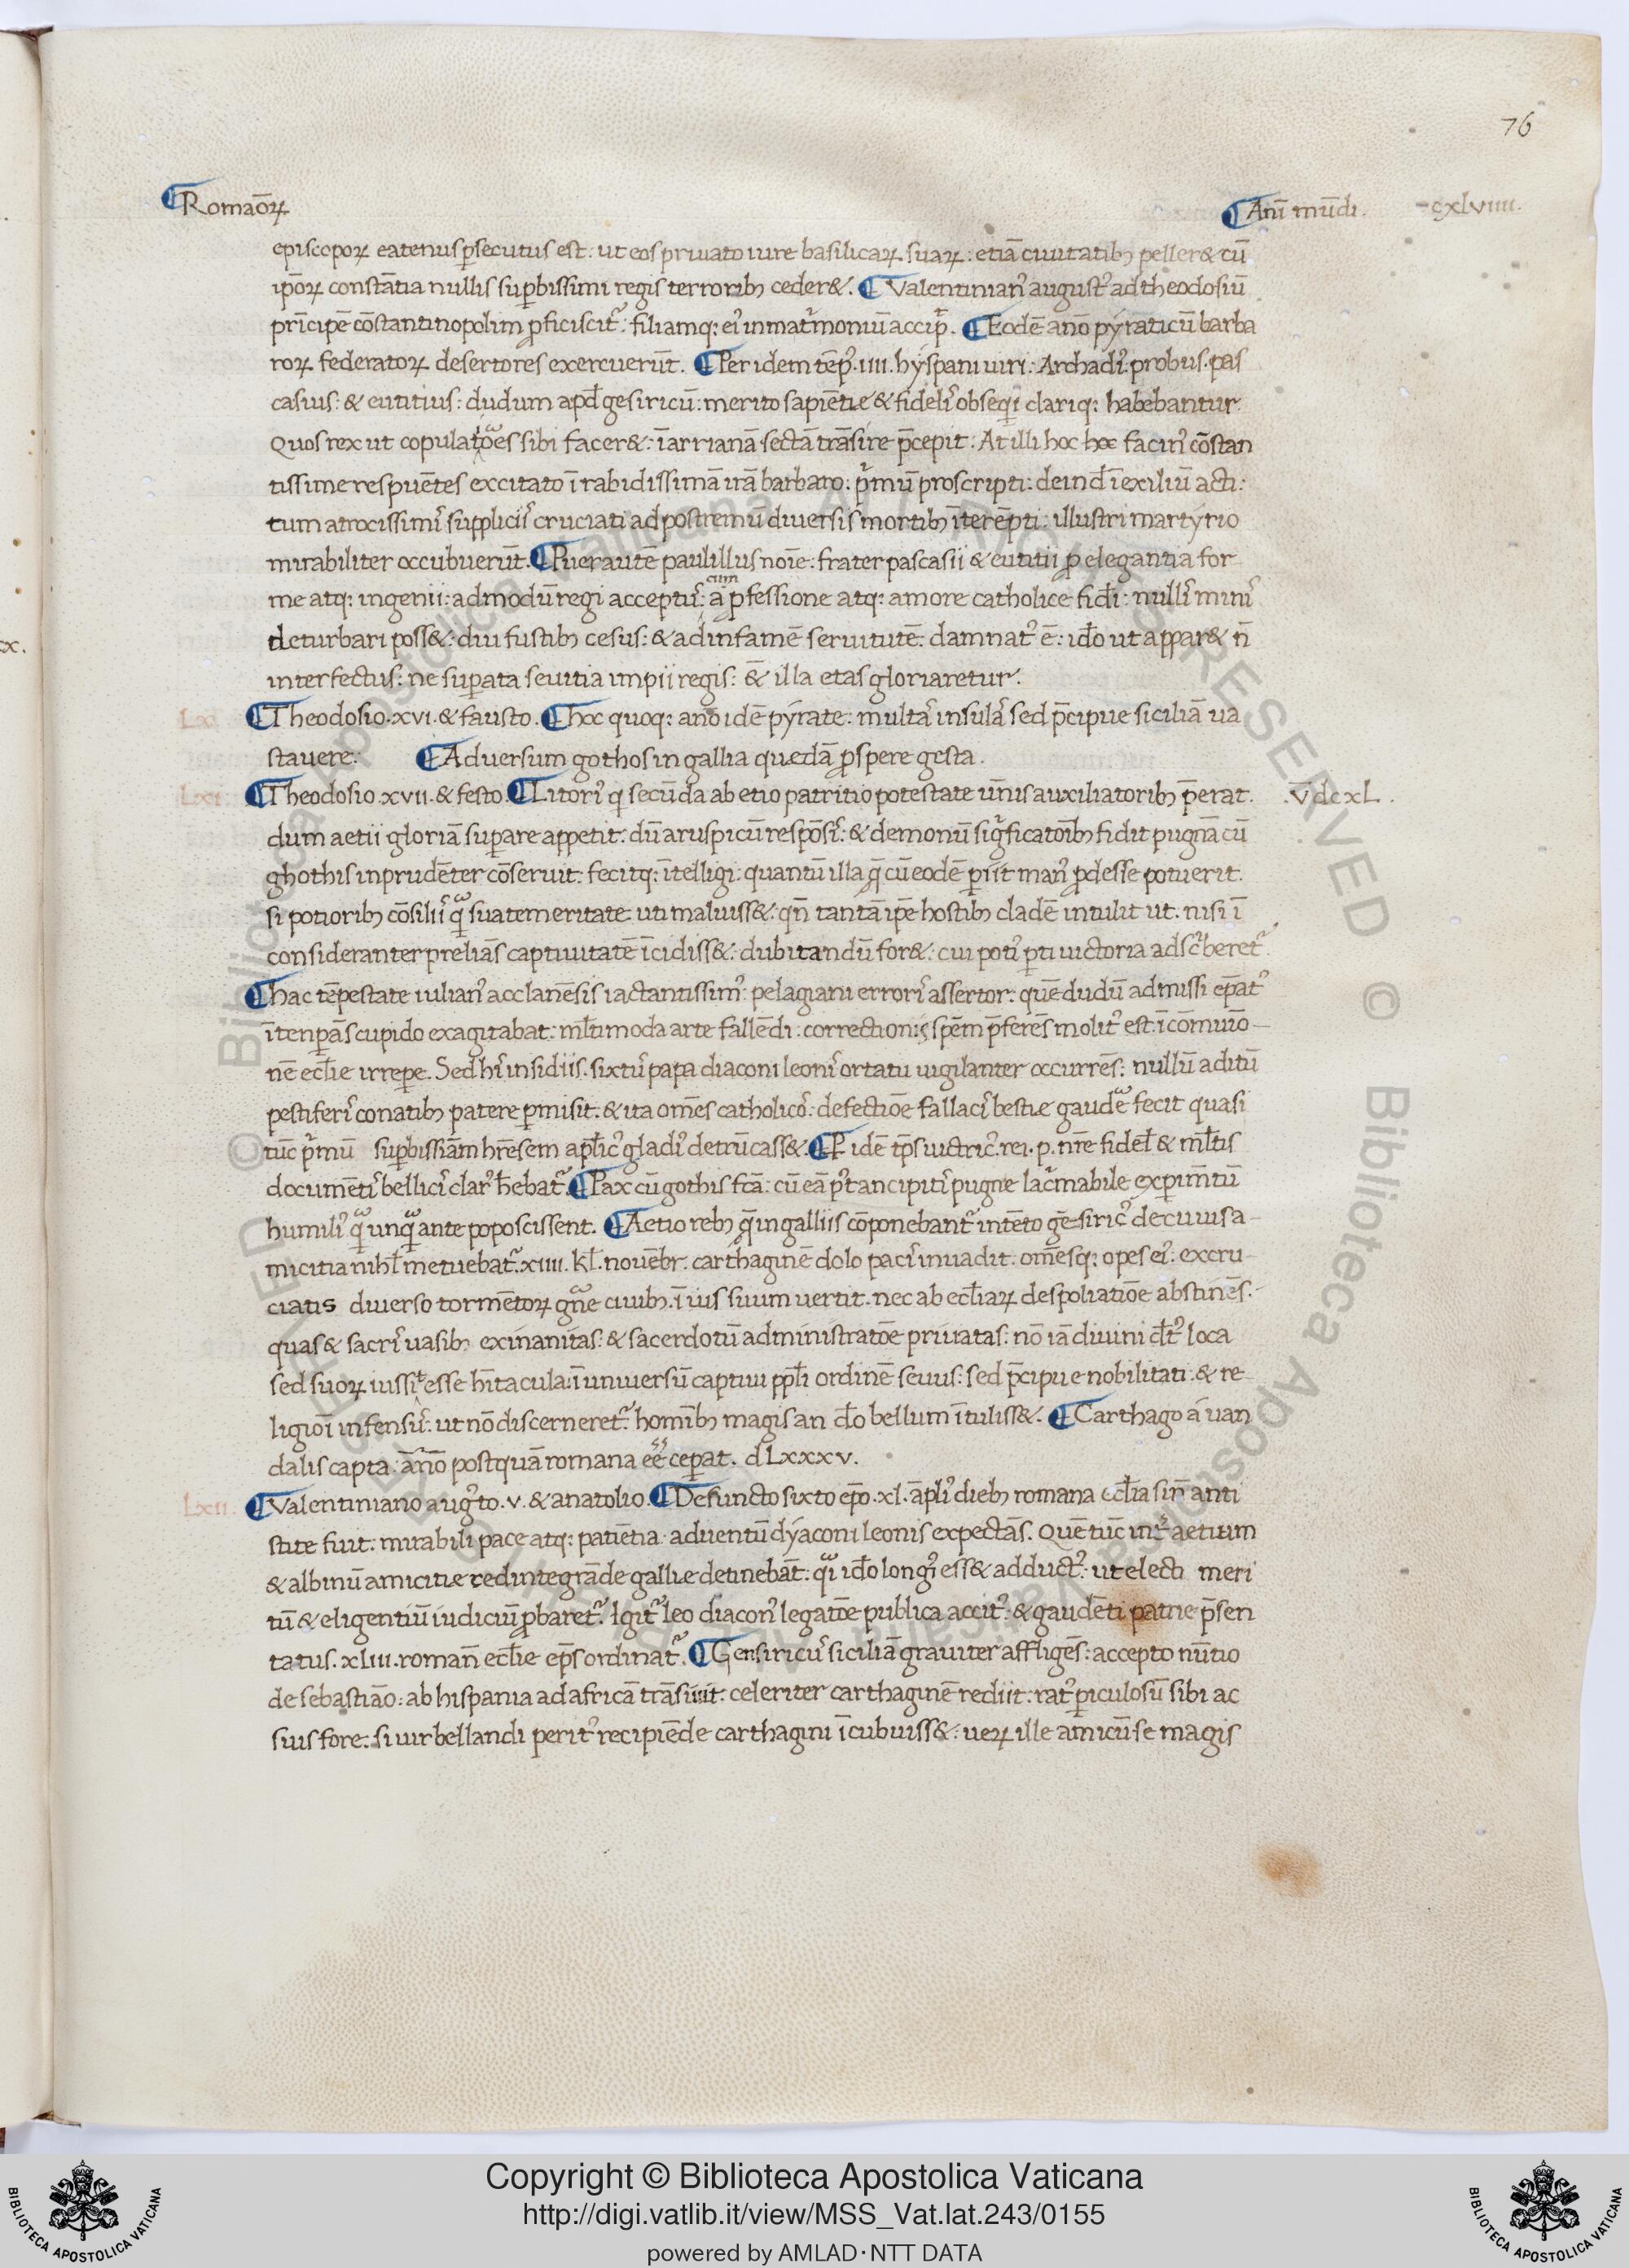 76
Romãoꝝ
Anĩ mũdi. cxlviiii.
episcopoꝝ eatenus ꝑsecutus est: ut eos priuato iure basilicaꝝ suaꝝ: etiã ciuitatibꝫ peller& cũ
ip̃oꝝ constãtia nullis suꝑbissimi regis terroribꝫ ceder&. Valentinianꝰ augustꝰ ad theodosiũ
prĩcipẽ cõstantinopolim ꝓficiscit᷑: filiamqꝫ eiꝰ in mat᷑moniũ accip̃. Eodẽ año pyraticũ barba
roꝝ federatoꝝ desertores exercuerũt. Per idem tẽpꝰ .iiii. hyspani uiri: Archadiꝰ: probus. pas
casius: & eutitius: dudum apđ gesiricũ: merito sapiẽtie & fideliꝰ obseqi clariqꝫ habebantur
Quos rex ut copulatões sibi facer&: ĩ arrianã sectã trãsire p̃cepit: At illi hoc hoc facinꝰ cõstan
tissime respuẽtes excitato ĩ rabidissimã irã barbaro: pͥmũ proscripti: deinđ ĩ exiliũ acti:
tum atrocissimiꝰ suppliciiꝰ cruciati ad postremũ diuersis mortibꝫ ĩterẽpti: illustri martyrio
mirabiliter occubuerũt. Puer autẽ paulillus noĩe: frater pascasii & eutitii ꝓ elegantia for
me atqꝫ ingenii: admodũ regi acceptuꝰ: cum a ꝓfessione atqꝫ amore catholice fiđi: nulliꝰ miniꝰ
deturbari poss&: diu fustibꝫ cesus: & ad infamẽ seruitutẽ: damnatꝰ ẽ: iđo ut appar& ñ
interfectus: ne suꝑata seuitia impii regis: & illa etas gloriaretur.
Lx.
Theodosio .xvi. & fausto. hoc quoqꝫ año idẽ pyrate: multaꝰ insulaꝰ sed p̃cipue siciliã ua
stauere. Aduersum gothos in gallia quedã ꝓspere gesta.
Lxi.
Theodosio .xvii. & festo. Litoriꝰ q secũda ab etio patritio potestate ũnis auxiliatoribꝫ p̃erat. .v̄dcxL.
dum aetii gloriã suꝑare appetit: dũ aruspicũ respõsiꝰ: & demonũ sigͥficatõibꝫ fidit pugnã cũ
ghothis inprudẽter cõseruit: fecitqꝫ ĩtelligi: quantũ illa q̃ cũ eodẽ ꝑiit manꝰ ꝓdesse potuerit.
si potioribꝫ cõsiliiꝰ q̃ sua temeritate uti maluiss&: qñ tantã ip̃e hostibꝫ cladẽ intulit ut. nisi ĩ
consideranter preliãs captiuitatẽ ĩcidiss&: dubitandũ for&: cui potiꝰ ꝑti uictoria adscͥberet᷑.
hac tẽpestate iulianꝰ acclanẽsis iactantissimꝰ: pelagiani erroriꝰ assertor: quẽ dudũ admissi ep̃atꝰ
ĩtenꝑãs cupido exagitabat: ml̃timoda arte fallẽdi: correctionis spẽm p̃ferẽs molitꝰ est: ĩ cõmuiõ
nẽ ecl̃ie irreꝑe. Sed hiꝰ insidiis. sixtuꝰ papa diaconi leoniꝰ ortatu uigilanter occurrẽs: nullũ aditũ
pestiferiꝰ conatibꝫ patere ꝑmisit. & ita om̃es catholicoꝰ: defectiõe fallaciꝰ bestie gaudẽ fecit quasi
tũc pͥmũ suꝑbissiãm hr̃esem apl̃icꝰ gladiꝰ detrũcass&. P idẽ tp̃s uictricꝰ. rei .p. nr̃e fidel̃ & ml̃tis
documẽtiꝰ belliciꝰ clarꝰ hẽbat᷑. Pax cũ gothis fc̃a: cũ eã pꝰt ancipitiꝰ pugne lacͥmabile exꝑim̃tũ
humiliꝰ q̃ unq̃ ante poposcissent. Aetio rebꝫ q̃ in galliis cõponebant᷑ intẽto gẽsiricꝰ de cuius a
micitia nihl̃ metuebat᷑. xiiii. kl̃. nouẽbr. carthaginẽ dolo paciꝰ inuadit: om̃esqꝫ opes eiꝰ: excru
ciatis diuerso tormẽtoꝝ gñe ciuibꝫ. ĩ ius suum uertit. nec ab ecl̃iaꝝ despoliatiõe abstinẽs.
quas & sacriꝰ uasibꝫ exinanitas: & sacerdotũ administratõe priuatas: nõ iã diuini cl̃tꝰ loca
sed suoꝝ iussit esse hĩtacula: ĩ uniuersũ captiui ppl̃i ordinẽ seuus: sed p̃cipue nobilitati: & re
ligioĩ infensuꝰ: ut nõ discerneret᷑ homĩbꝫ magis an đo bellum ĩtuliss&. Carthago a uan
dalis capta: ãño postquã romana eẽ ceꝑat. dLxxxv.
Lxii.
Valentiniano augꝰto .v. & anatolio. Defuncto sixto ep̃o .xl. ãpliꝰ diebꝫ romana ecl̃ia siñ anti
stite fuit: mirabili pace atqꝫ patiẽtia aduentũ dyaconi leonis expectãs. Quẽ tũc int᷑ aetium
& albinũ amicitie redintegrãde gallie detinebãt: q̃i iđo longꝰ ess& adductꝰ: ut electi meri
tũ & eligentiũ iudiciũ ꝓbaret᷑. Igit᷑ leo diaconꝰ legatõe publica accitꝰ: & gaudẽti patrie p̃sen
tatus. xliii. romañ ecl̃ie ep̃s ordinat᷑. Gensiricuꝰ siciliã grauiter affligẽs: accepto nũtio
de sebastião: ab hispania ad africã trãsiuit: celeriter carthaginẽ rediit: ratꝰ ꝑiculosũ sibi ac
suis fore: si uir bellandi peritꝰ recipiẽde carthagini ĩcubuiss&: ueꝝ ille amicũ se magis
Copyright © Biblioteca Apostolica Vaticana
http://digi.vatlib.it/view/MSS_Vat.lat.243/0155
powered by AMLAD·NTT DATA
BIBLIOTECA APOSTOLICA VATICANA
BIBLIOTECA APOSTOLICA VATICANA